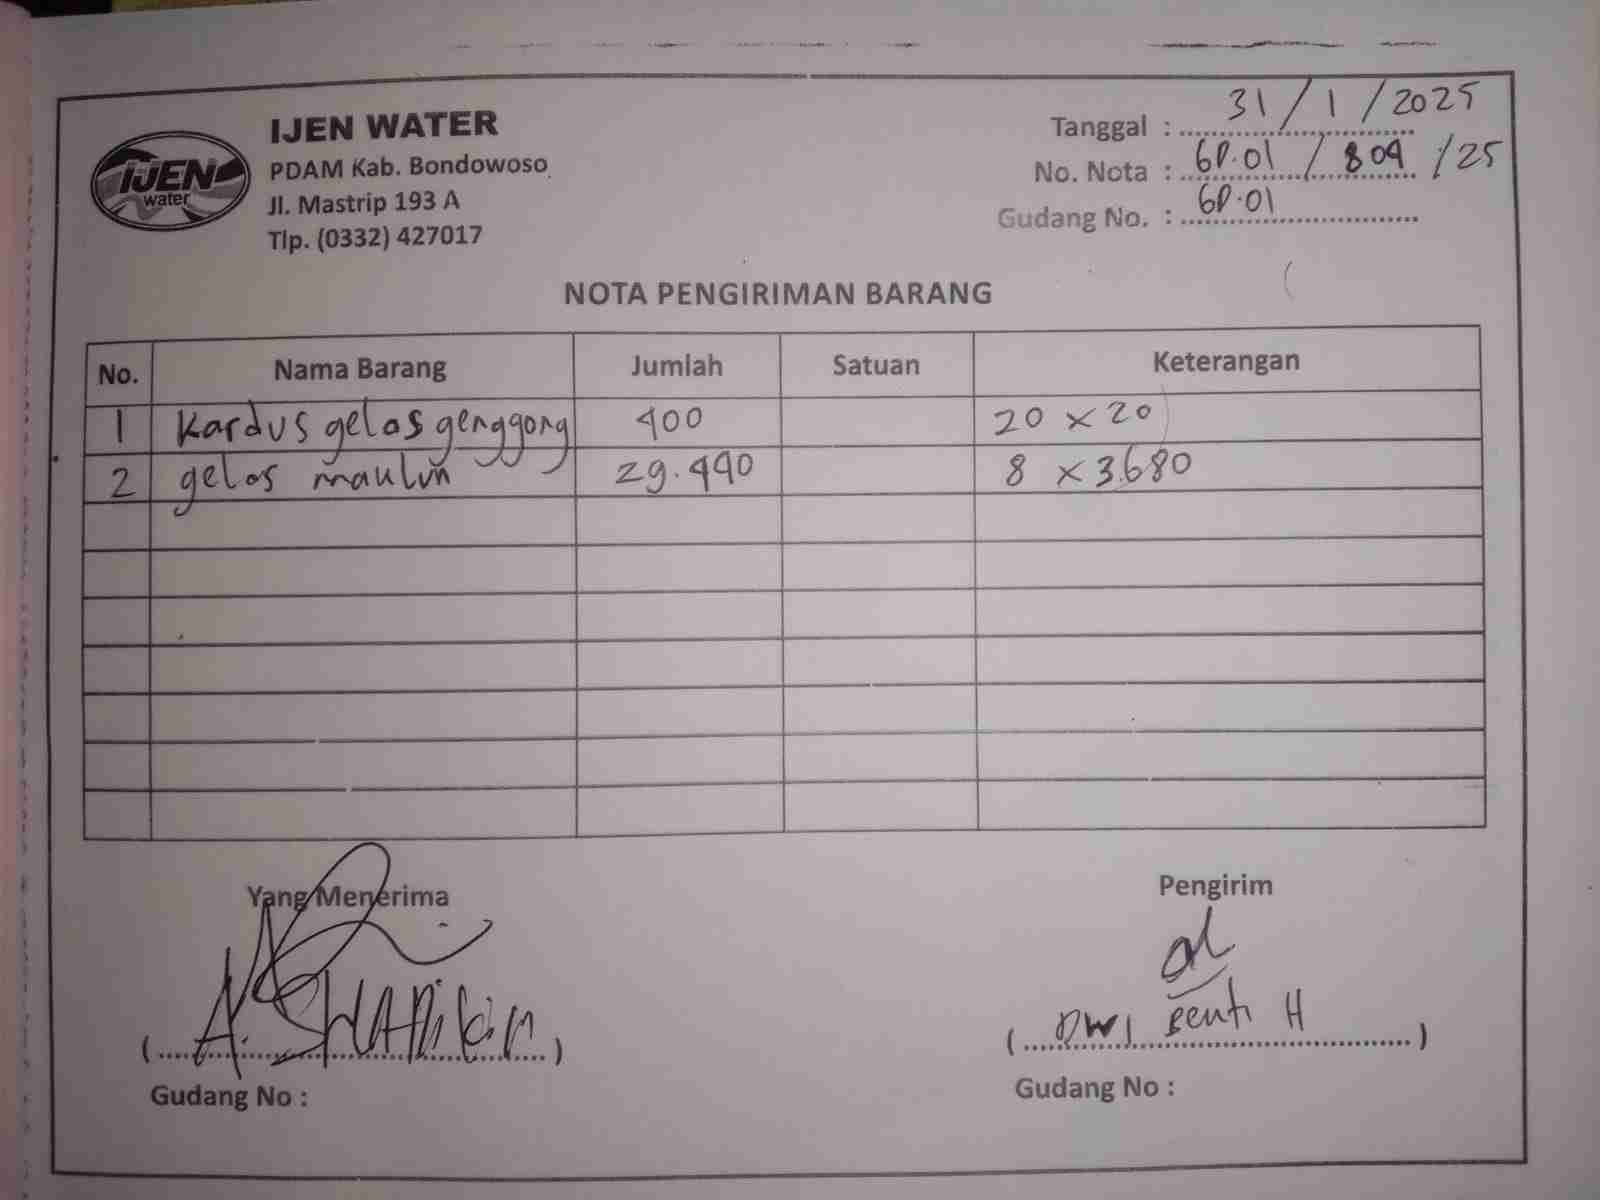 IJEN
water
IJEN WATER
PDAM Kab. Bondowoso
Jl. Mastrip 193 A
Tlp. (0332) 427017
Tanggal : 31 / 1 / 2025
No. Nota : GD.01 / 809 / 25
Gudang No. : GD.01
NOTA PENGIRIMAN BARANG
No. Nama Barang Jumlah Satuan Keterangan
1 Kardus gelas genggong 400 20 x 20
2 gelas maulun 29.440 8 x 3.680
Yang Menerima Pengirim
( A. ) ( DWI H )
Gudang No : Gudang No :